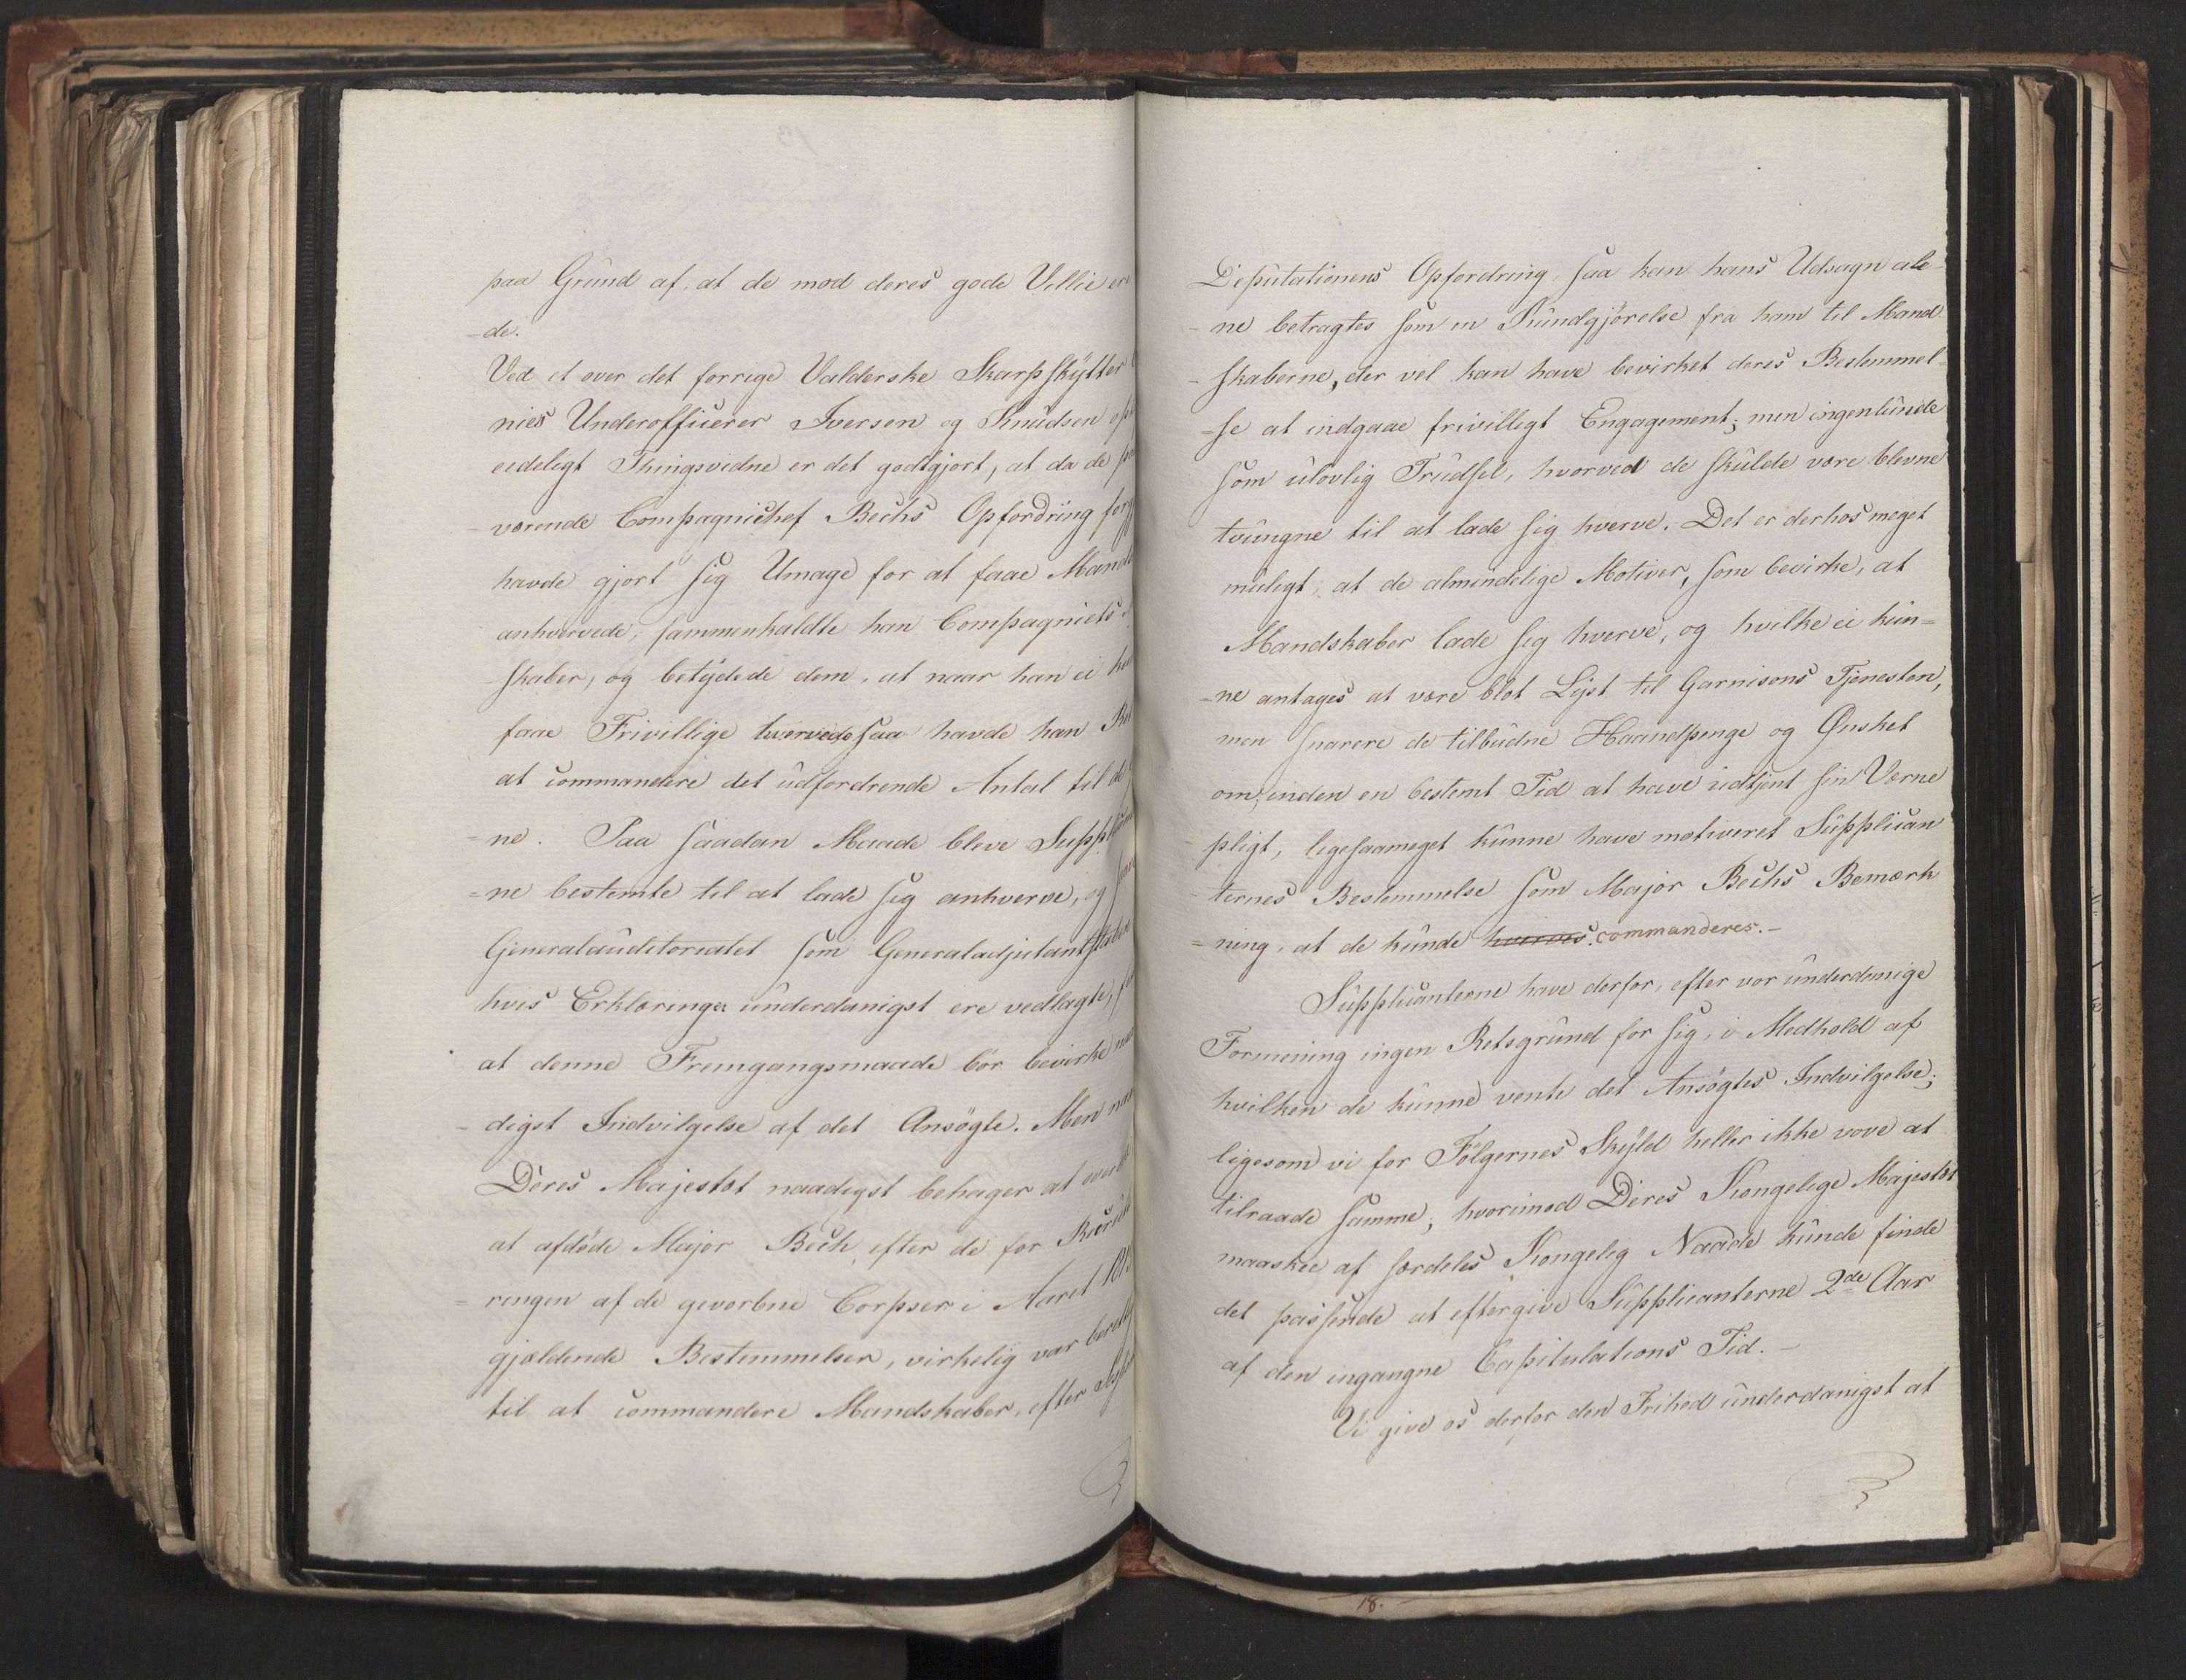 paa Grund af, at de mod deres gode Villie ere
-de.
Ved et over det forrige Valderske Skarpskytter
nies Underofficerer Iversen og Knudsen
eedeligt Thingsvidne er det godtgjort, at da de
værende Compagnichef Bechs Opfordring
havde gjort sig Umage for at faae Mand
anhvervede, sammenkaldte han Compagniets
skaber, og betydede dem, at naar han ei
faae Frivillige hvervede saa havde han
at commandere det udfordrende Antal til de
=ne. Paa saadan Maade bleve
=ne bestemte til at lade sig anhverve, og
Generalauditoriatet som Generaladjutantstaben
hvis Erklæringer underdanigst ere vedlagte,
at denne Fremgangsmaade bør bevirke
-digst Indvilgelse af det Ansøgte. Men naar
Deres Majestæt naadigst behager at
at afdøde Major Bech, efter de for
=ringen af de gevorbne Corpser i Aaret
gjældende Bestemmelser, virkelig var
til at commandere Mandskaber, efter
Deputationens Opfordring, saa kan hans Udsagn ale-
-ne betragtes som en Kundgjørelse fra ham til Mand
-skaberne, der vel kan have bevirket deres Bestemmel-
=se at indgaae frivilligt Engagement; men ingenlunde
som ulovlig Trudsel, hvorved de skulde være blevne
tvungne til at lade sig hverve. Det er derhos meget
muligt, at de almindelige Motiver, som bevirke, at
Mandskaber lade sig hverve, og hvilke ei kun=
-ne antages at være blot Lyst til Garnisons Tjenesten,
men snarere de tilbudne Haandpenge og Ønsket
om, inden en bestemt Tid at have udtjent sin Værne
-pligt, ligesaameget kunne have motiveret Supplican
-ternes Bestemmelse som Major Bechs Bemærk
=ning, at de kunde hverves commanderes.-
Supplicanterne have derfor, efter vor underdanige
Formening ingen Retsgrund for sig, i Medhold af
hvilken de kunne vente det Ansøgtes Indvilgelse;
ligesom vi for Følgernes Skyld heller ikke vove at
tilraade samme; hvorimod Deres Kongelige Majestæt
maaskee af særdeles Kongelig Naade kunde finde
det passende at eftergive Supplicanterne 2de Aar
af den ingangne Capitulations Tid.-
Vi give os derfor den Frihed underdanigst at
18.